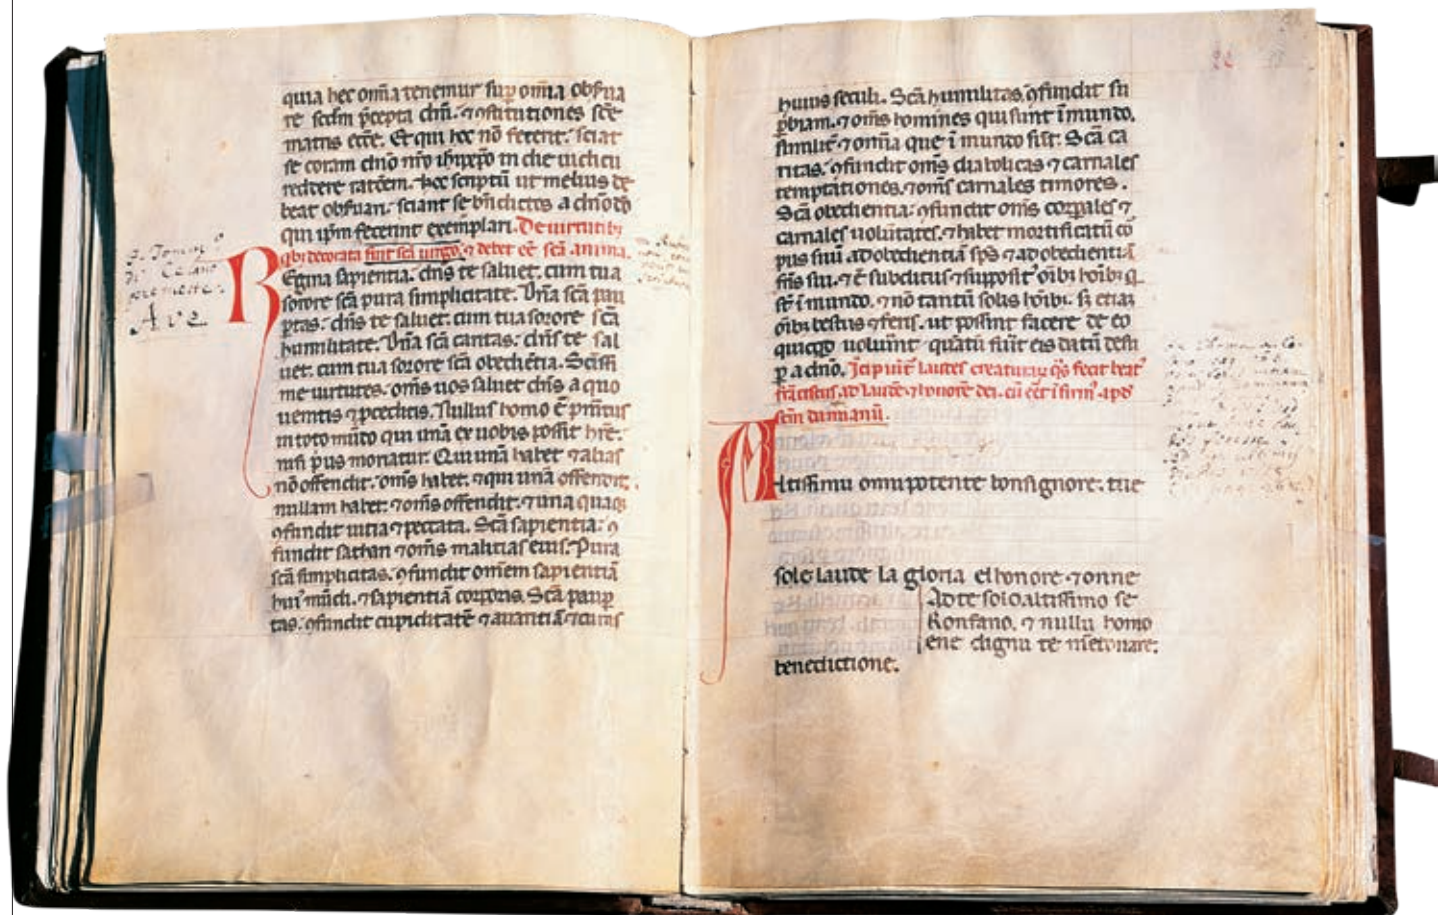 quia hec om̄ia tenemur sup̄ om̄ia obẜua
re scđm p̄cepta dn̄i. ⁊ ꝯstitutiones sc̄e
matris ecc̄e. Et qui hoc nō fecerit. sciat
se coram dn̄o nr̄o ih̄u xp̄o in die iudicii
reddere ratōem. hoc scriptū ut melius de
beat obẜuari. sciant se bn̄dictos a dn̄o do
qui ip̄m fecerint exemplari. De uirtutibꝫ
qͥbꝫ decorata fuit sc̄a uirgo. ⁊ debet eē sc̄a anima.
Regina sapientia. dn̄s te saluet. cum tua
sorore sc̄a pura simplicitate. Dn̄a sc̄a pau
ꝑtas. dn̄s te saluet. cum tua sorore sc̄a
humilitate. Dn̄a sc̄a caritas. dn̄s te sal
uet. cum tua sorore sc̄a obediētia. Sc̄issi
me uirtutes. om̄s uos saluet dn̄s a quo
uenitis ⁊ ꝓceditis. Nullus homo ē penitus
in toto mūdo qui unā ex uobis possit hr̄e.
nisi p̄us moriatur. Qui unā habet ⁊ alias
nō offendit. om̄s habet. ⁊ qui unā offendit.
nullam habet. ⁊ om̄s offendit. ⁊ una quaqꝫ
ꝯfundit uitia ⁊ peccata. Sc̄a sapientia. ꝯ
fundit sathan ⁊ om̄s malitias eius. Pura
sc̄a simplicitas. ꝯfundit omem sapientiā
huiꝰ mūdi. ⁊ sapientiā corporis. Sc̄a pauꝑ
tas. ꝯfundit cupiditatē ⁊ auaritiā ⁊ curas
p. Tomm
di Celano
Ave
22
huius seculi. Sc̄a humilitas ꝯfundit su
ꝑbiam. ⁊ om̄s homines qui sunt ī mundo.
similit̄ ⁊ om̄ia que ī mundo sūt. Sc̄a ca
ritas. ꝯfundit om̄s diabolicas ⁊ carnales
temptationes. ⁊ om̄s carnales timores.
Sc̄a obedientia. ꝯfundit om̄s corꝑales ⁊
carnales uolūtates. ⁊ habet mortificatū co
pus suū ad obedientiā sp̄s ⁊ ad obedientiā
fr̄is sui. ⁊ ē subditus ⁊ supposit̄ oībꝫ hoībꝫ q̄
st̄ ī mundo. ⁊ nō tantū solis hoībꝫ. sꝫ etiā
oībꝫ bestiis ⁊ feris. ut possint facere de eo
quicqd̄ uoluerīt quātū fūit eis datū desu
ꝑ a dn̄o. Īcipiūt laudes creaturaꝝ q̄s fecit beat̄
frāciscus ad laudē ⁊ honorē dei. cū eēt īfirmꝰ apđ
sc̄m damianū.
Altissimu omnipotente bonsignore. tue
sole laude la gloria elhonore ⁊ onne
benedictione.
Ad te solo altissimo se
Konfano. ⁊ nullu homo
ene dignu te mētouare.